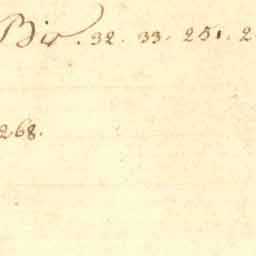 Bir. 32. 33. 251. 2
268.